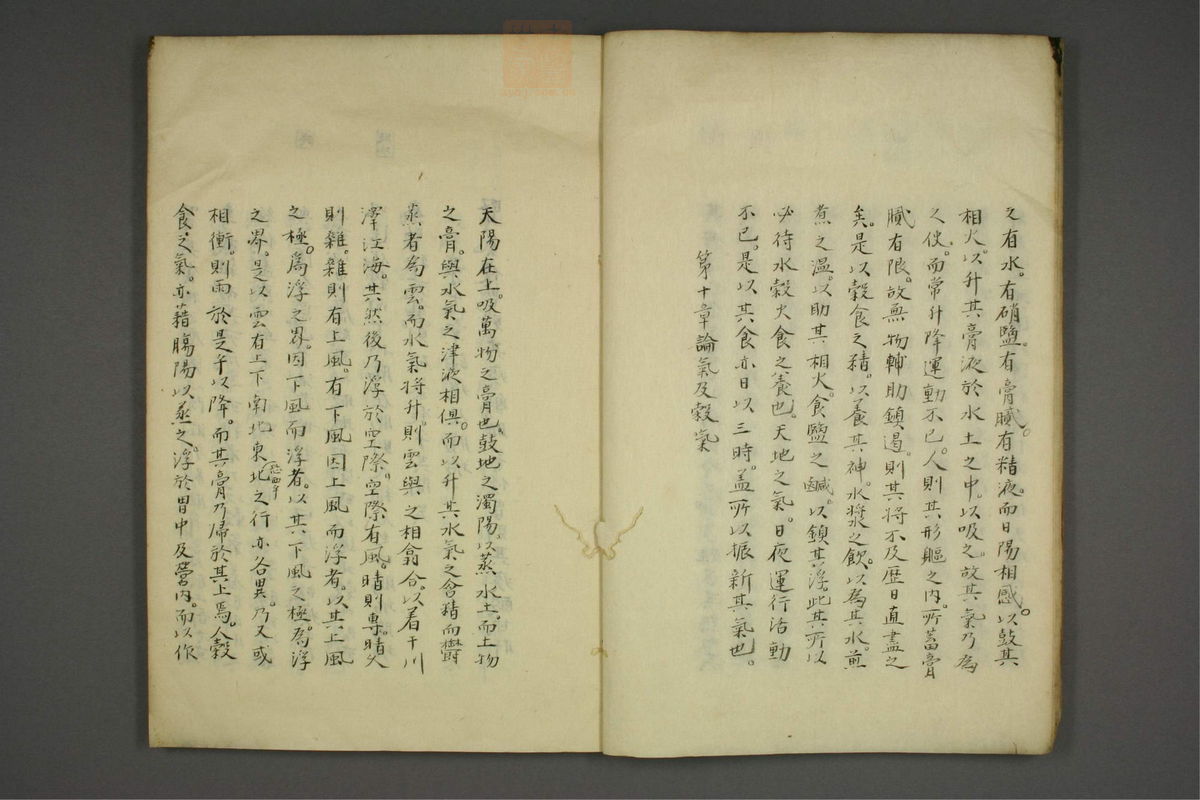 之有水。有硝鹽。有膏膩。有精液。而日陽相感。以鼓其
相火。以升其膏液於水土之中。以吸之。故其氣乃為
之使。而常升降運動不已。人則其形軀之內。所蓄膏
膩有限。故無物輔助鎮遏。則其將不及歷日直盡之
矣。是以穀食之精。以養其神。水漿之飲。以為其水。煎
煮之溫。以助其相火。食鹽之鹹。以鎮其浮。此其所以
必待水穀火食之養也。天地之氣。日夜運行活動
不已。是以其食亦日以三時。蓋所以振新其氣也。
第十章論氣及穀氣
天陽在上。吸萬物之膏也。鼓地之濁陽。以蒸水土。而土物
之膏。與水氣之津液相俱。而以升其水氣之含精而欝
蒸者為雲。而水氣將升。則雲與之相翕合。以着于川
澤江海。其然後乃浮於空際。空際有風。晴則專。晴久
則雜。雜則有上風。有下風因上風而浮者。以其上風
之極。為浮之界。因下風而浮者。以其下風之極為浮
之界。是以雲有上下南北東北之行亦各異。乃又或
恐西字
相衝。則雨於是乎以降。而其膏乃歸於其上焉。人穀
食之氣。亦藉腸陽以蒸之。浮於胃中及營內。而以作